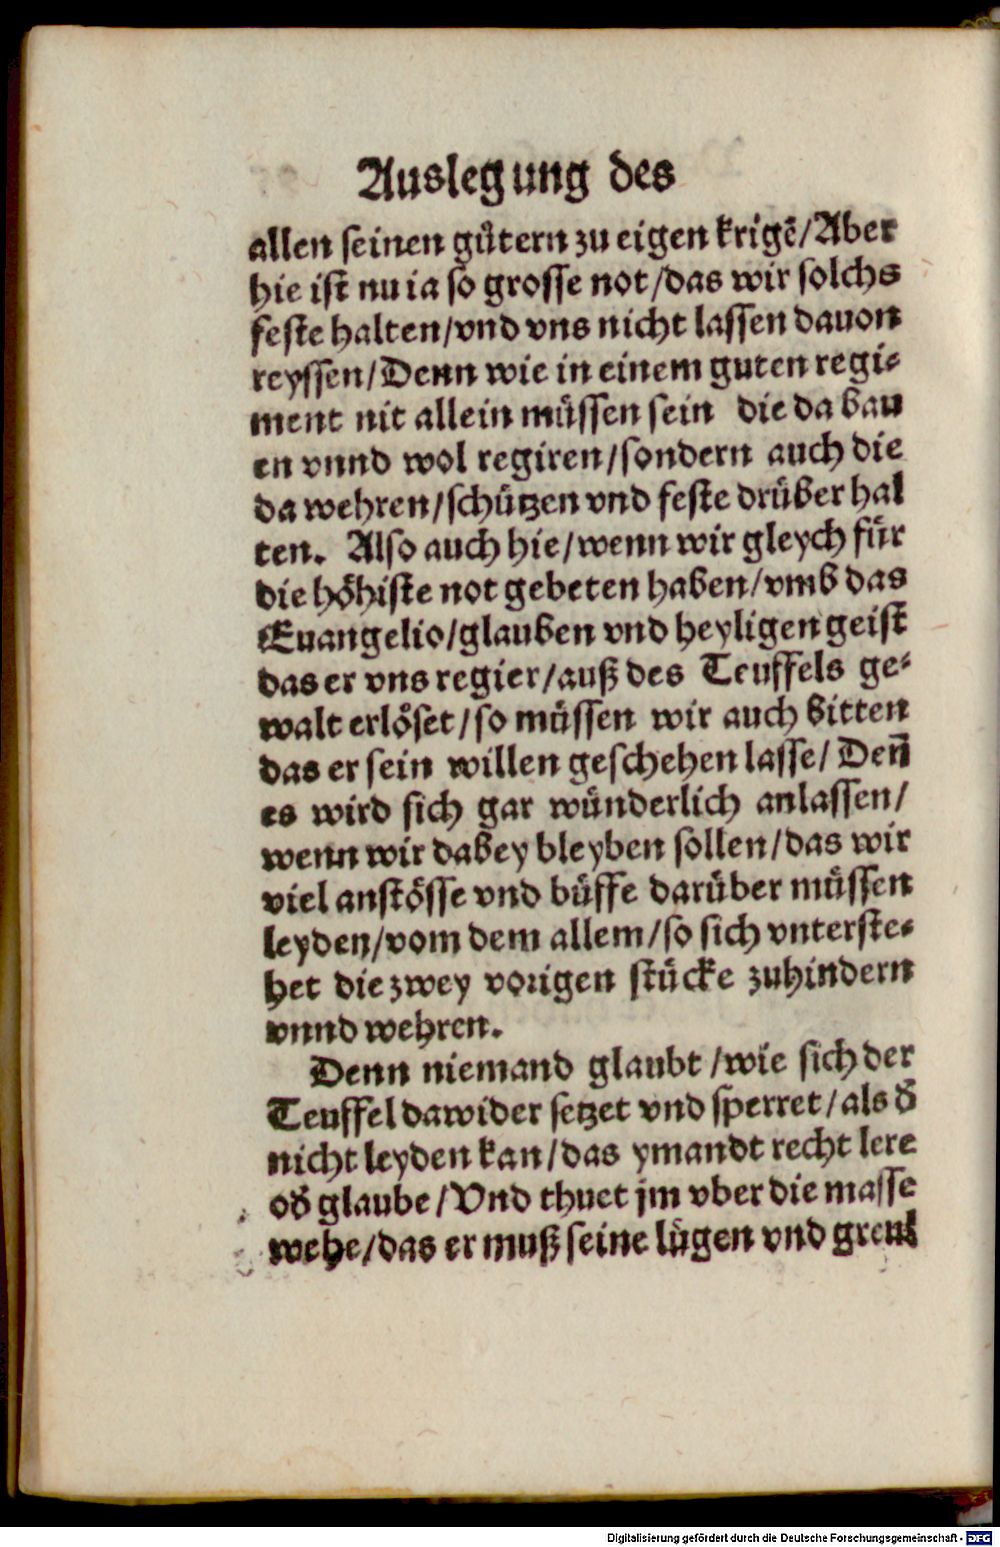 Auslegung des
allen seinen gütern zu eigen krigē/Aber
hie ist nu ia so grosse not/das wir solchs
feste halten/vnd vns nicht lassen dauon
reyssen/Denn wie in einem guten regi-
ment nit allein müssen sein die da bau
en vnnd wol regiren/sondern auch die
da wehren/schützen vnd feste drüber hal
ten. Also auch hie/wenn wir gleych für
die höhiste not gebeten haben/vmb das
Euangelio/glauben vnd heyligen geist
das er vns regier/auß des Teuffels ge-
walt erlöset/so müssen wir auch bitten
das er sein willen geschehen lasse/Deñ
es wird sich gar wünderlich anlassen/
wenn wir dabey bleyben sollen/das wir
viel anstösse vnd büffe darüber müssen
leyden/vom dem allem/so sich vnterste-
het die zwey vorigen stücke zuhindern
vnnd wehren.
Denn niemand glaubt/wie sich der
Teuffel dawider setzet vnd sperret/als d̄
nicht leyden kan/das ymandt recht lere
od̄ glaube/Vnd thuet jm vber die masse
wehe/das er muß seine lügen vnd greul
Digitalisierung gefördert durch die Deutsche Forschungsgemeinschaft - DFG